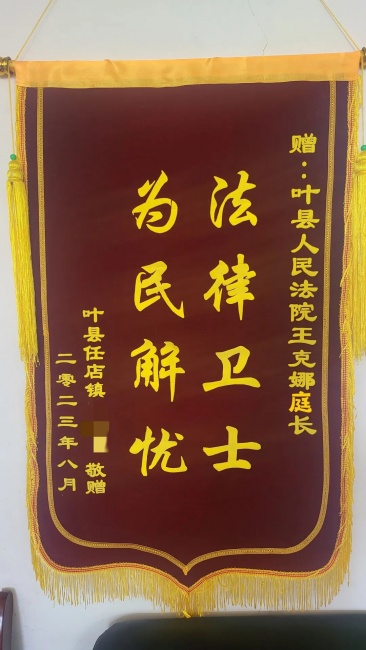 赠：叶县人民法院王克娜庭长
法律卫士
为民解忧
叶县任店镇 敬赠
二零二三年八月